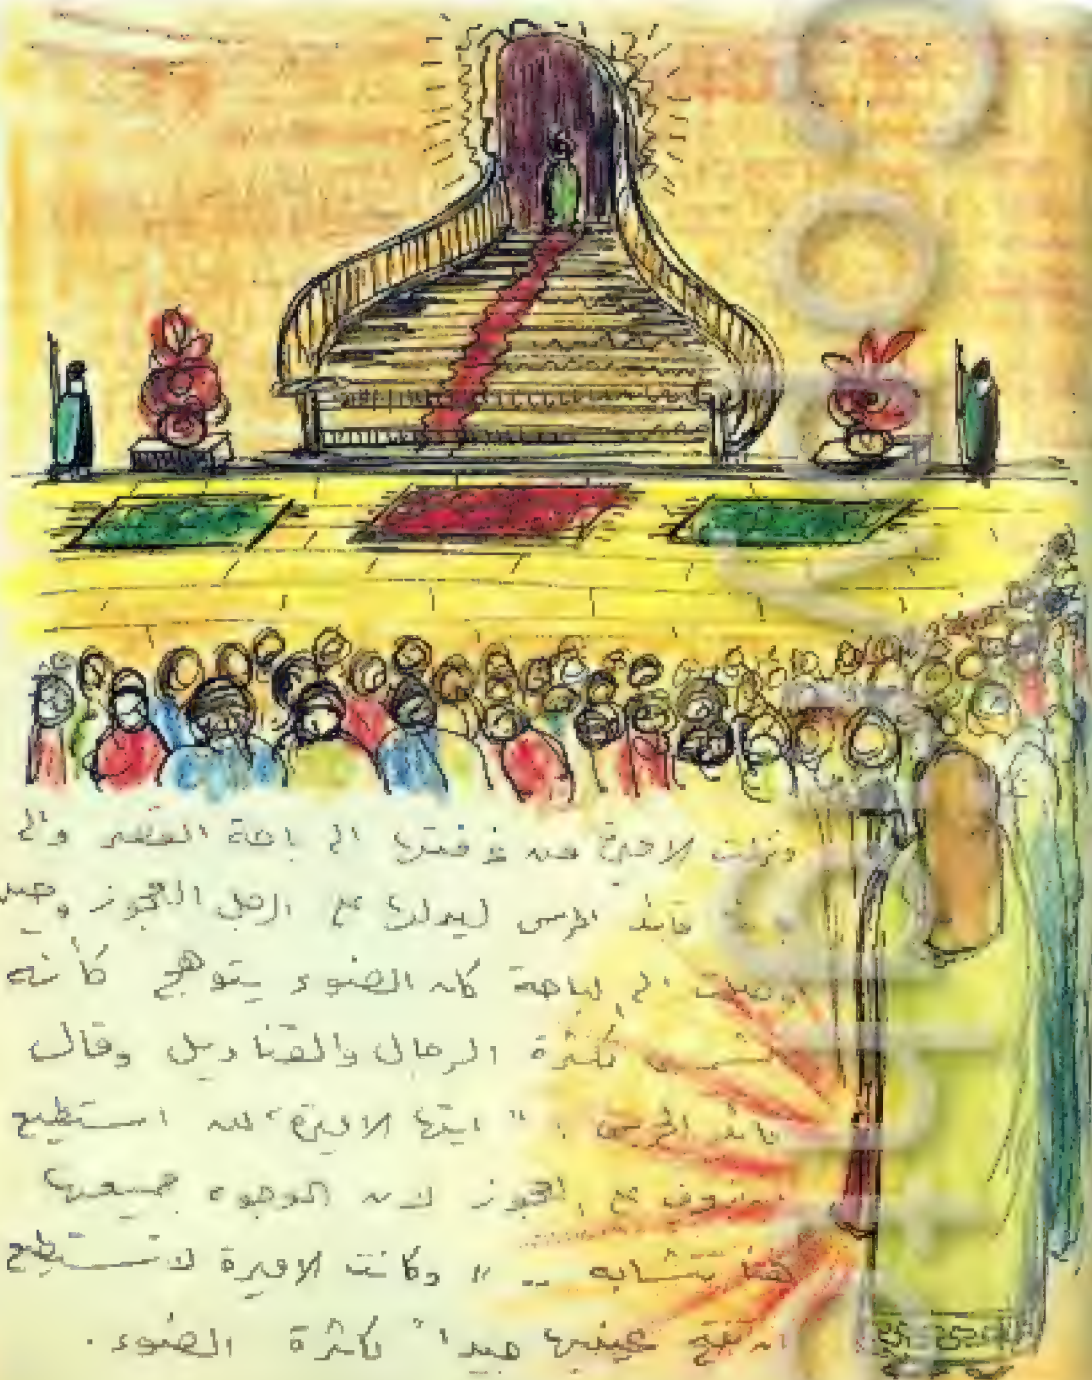 ونزلت الاميرة من غرفتها الى باحة القصر والى
قائد الحرس ليدلها على الرجل العجوز وحين
وصلت الى الباحة كان الضوء يتوهج كأنه
الشمس لكثرة الرجال والقناديل وقال
قائد الحرس : " ايتها الاميرة لن استطيع
التعرف على العجوز لان الوجوه جميعها
هنا تتشابه .. " وكانت الاميرة لا تستطيع
ان تفتح عينيها جيداً لكثرة الضوء .